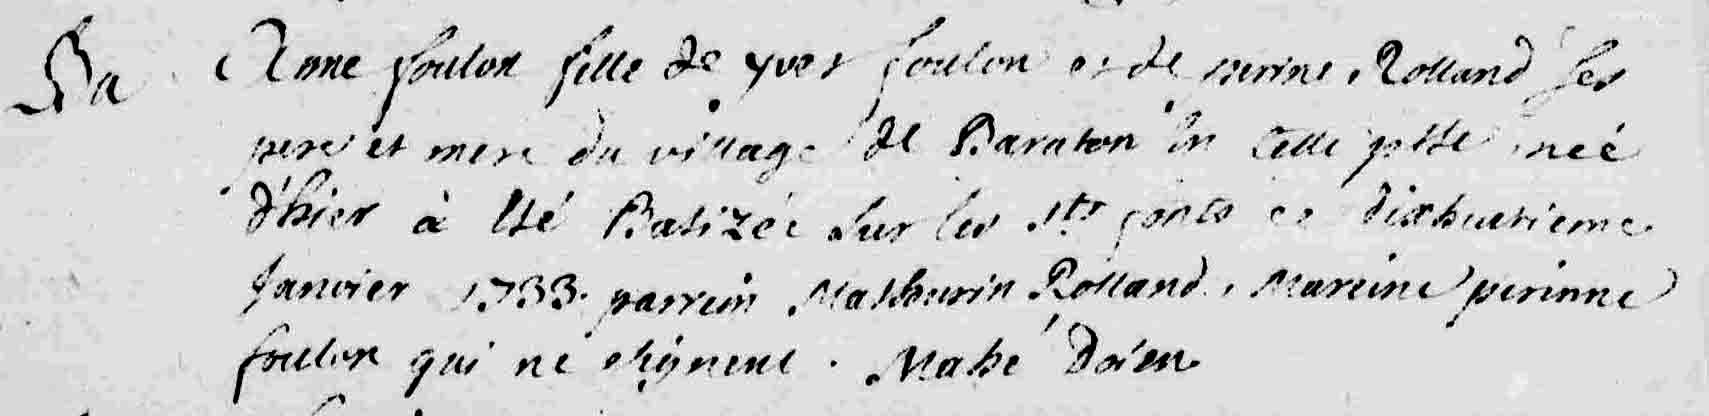 Ba Anne foulon fille de yves foulon et de perine Rolland ses
pere et mere du village de Baraton en cette psse née
d'hier à Eté Batizée sur les sts fonts ce dixhuetieme
Janvier 1733. parrein Mathurin Rolland, Mareine perinne
foulon qui ne signent. Mahé doien